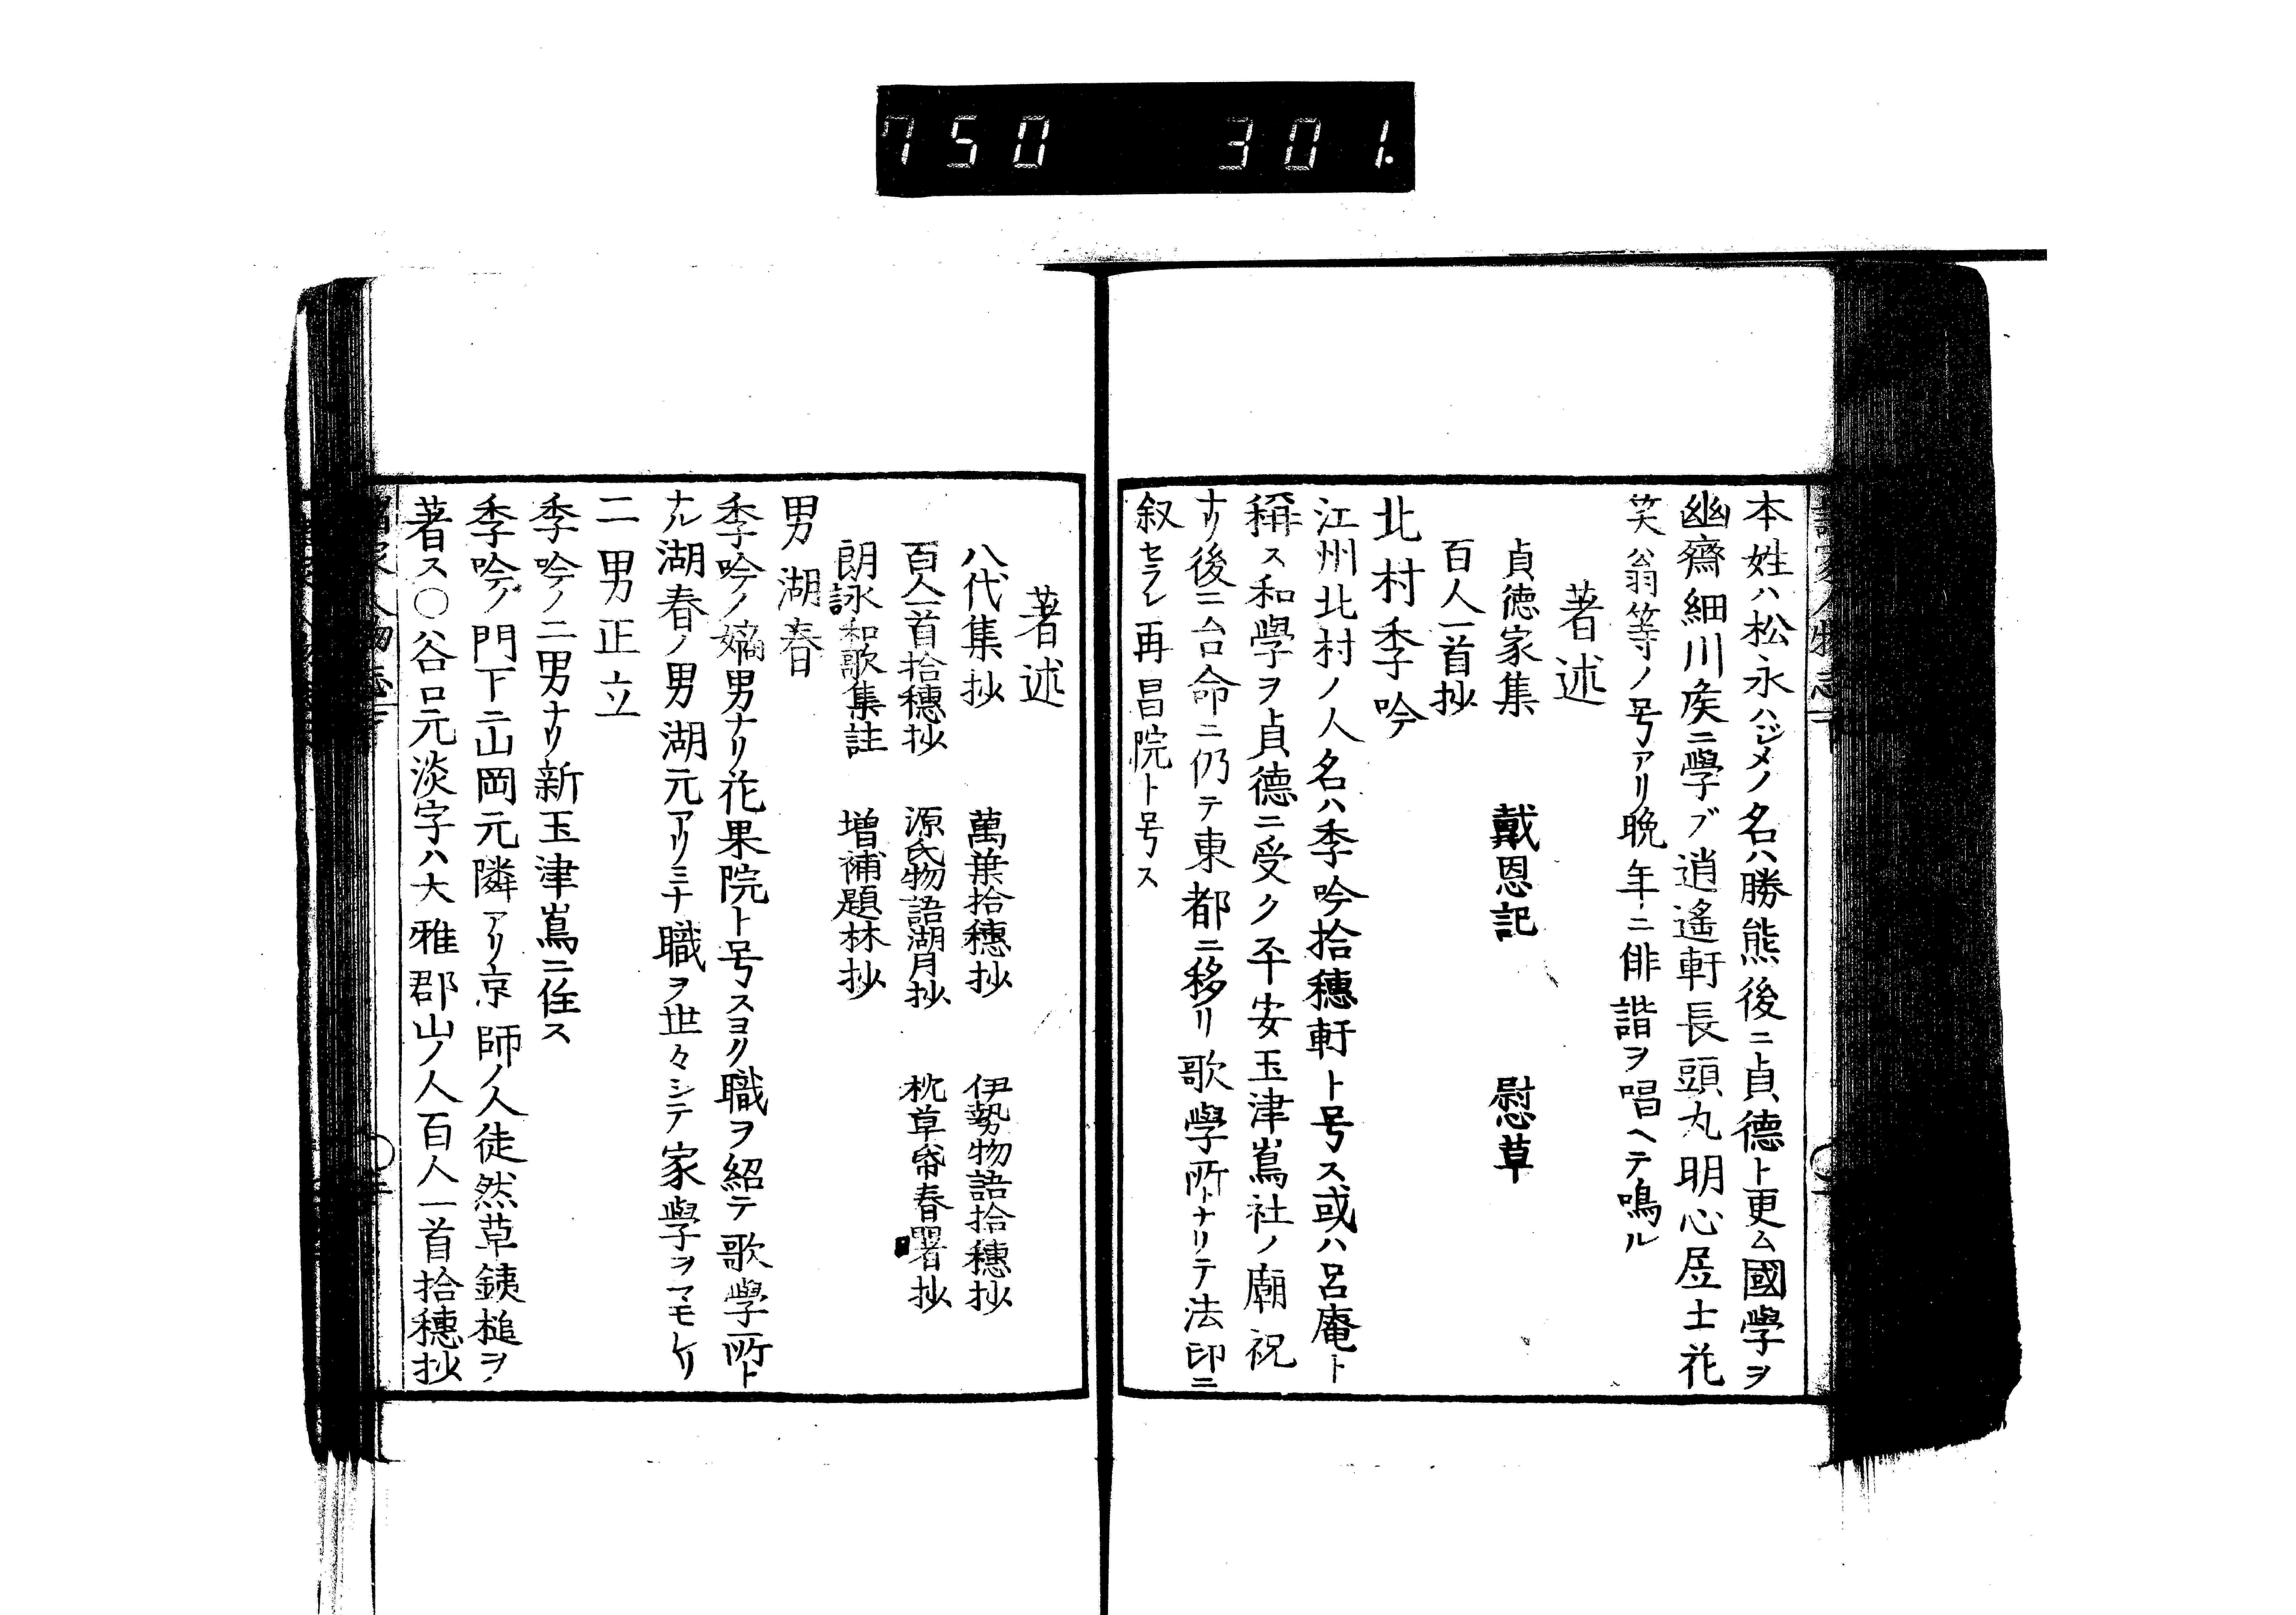 750 301.
本姓ハ松永ハジメノ名ハ勝熊後ニ貞德ト更ム國學ヲ
幽齋細川侯ニ學ブ逍遙軒長頭丸明心居士花
笑翁等ノ号アリ晩年ニ俳諧ヲ唱ヘテ鳴ル
著述
貞徳家集 戴恩記 慰草
百人一首抄
北村季吟
江州北村ノ人名ハ季吟拾穗軒ト号ス或ハ呂庵ト
稱ス和學ヲ貞德ニ受ク平安玉津嶌社ノ廟祝
ナリ後ニ台命ニ仍テ東都ニ移リ歌學所トナリテ法印ニ
叙セラレ再昌院ト号ス
著述
八代集抄 萬葉拾穗抄 伊勢物語拾穗抄
百人一首拾穗抄 源氏物語湖月抄 枕草帋春曙抄
朗詠和歌集註 増補題林抄
男湖春
季吟ノ嫡男ナリ花果院ト号スヨク職ヲ紹テ歌學所ト
ナル湖春ノ男湖元アリミナ職ヲ世々シテ家學ヲマモレリ
二男正立
季吟ノ二男ナリ新玉津嶌ニ住ス
季吟ノ門下ニ山岡元隣アリ京師ノ人徒然草銕槌ヲ
著ス〇谷口元淡字ハ大雅郡山ノ人百人一首拾穗抄